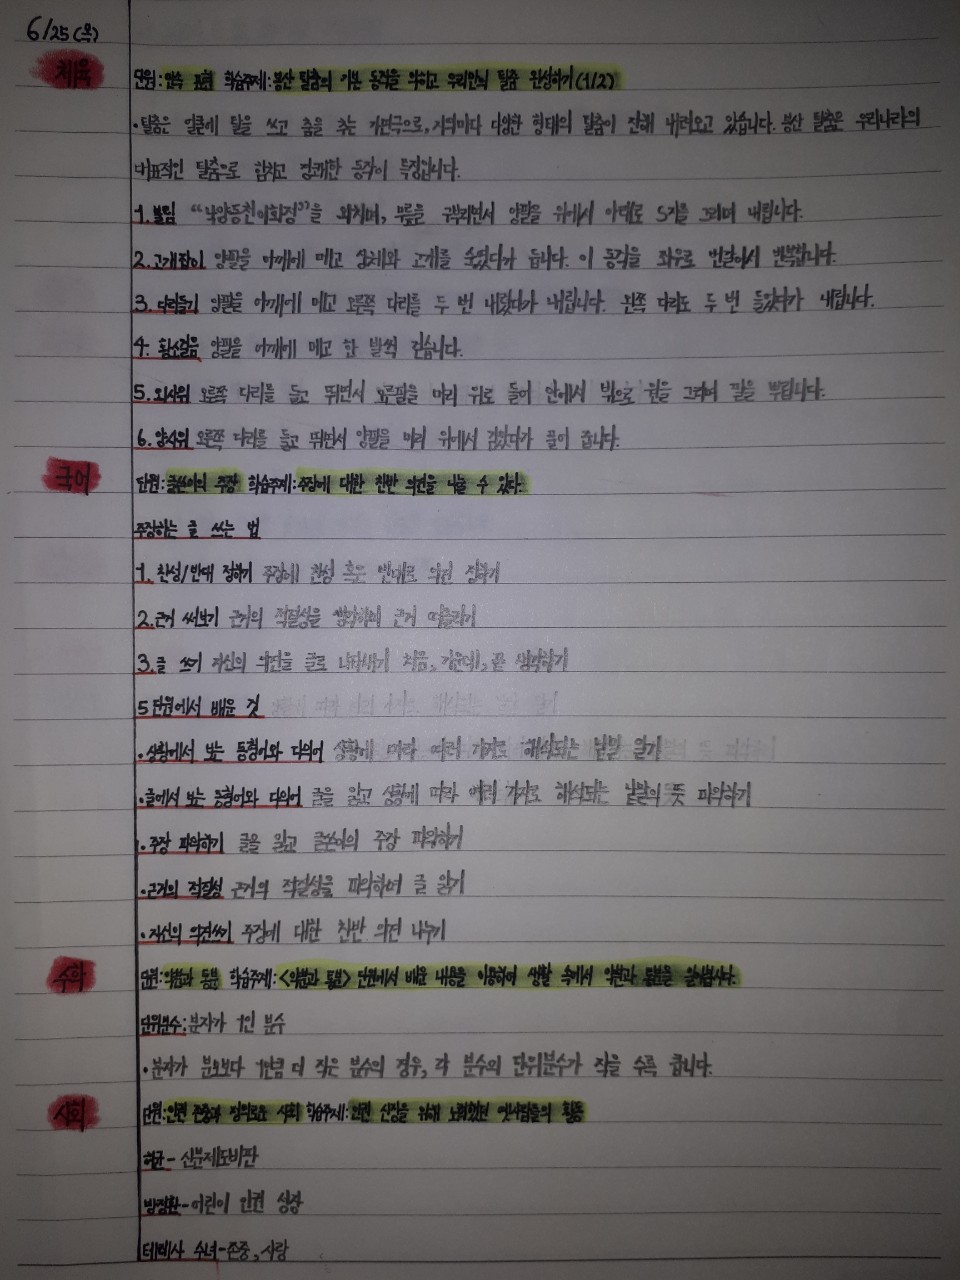 6/25(목)
체육
단원: 민속 표현 학습주제: 봉산 탈춤의 기본 동작을 익히고 우리만의 탈춤 완성하기(1/2)
·탈춤은 얼굴에 탈을 쓰고 춤을 추는 가면극으로, 지역마다 다양한 형태의 탈춤이 전해 내려오고 있습니다. 봉산 탈춤은 우리나라의
대표적인 탈춤으로 힘차고 경쾌한 동작이 특징입니다.
1. 불림 "낙양동천이화정"을 외치며, 무릎을 구부리면서 양팔을 위에서 아래로 S자를 그리며 내립니다.
2. 고개잡이 양팔을 어깨에 메고 상체와 고개를 숙였다가 듭니다. 이 동작을 좌우로 번갈아서 반복합니다.
3. 다리들기 양팔을 어깨에 메고 오른쪽 다리를 두 번 내렸다가 내립니다. 왼쪽 다리도 두 번 들었다가 내립니다.
4. 황소걸음 양팔을 어깨에 메고 한 발씩 걷습니다.
5. 외사위 오른쪽 다리를 들고 뛰면서 오른팔을 머리 위로 들어 안에서 밖으로 원을 그리며 팔을 뿌립니다.
6. 양사위 오른쪽 다리를 들고 뛰면서 양팔을 머리 위에서 감았다가 풀어 줍니다.
국어
단원: 글쓴이의 주장 학습주제: 주장에 대한 찬반 의견을 나눌 수 있다.
주장하는 글 쓰는 법
1. 찬성/반대 정하기 주장에 찬성 혹은 반대로 의견 정하기
2. 근거 써보기 근거의 적절성을 생각하며 근거 떠올리기
3. 글 쓰기 자신의 의견을 글로 나타내기 처음, 가운데, 끝 생각하기
5단원에서 배운 것
·상황에서 보는 동형어와 다의어 상황에 따라 여러 가지로 해석되는 낱말 알기
·글에서 보는 동형어와 다의어 글을 읽고 상황에 따라 여러 가지로 해석되는 낱말의 뜻 파악하기
·주장 파악하기 글을 읽고 글쓴이의 주장 파악하기
·근거의 적절성 근거의 적절성을 파악하며 글 읽기
·자신의 의견쓰기 주장에 대한 찬반 의견 나누기
수학
단원: 약분과 통분 학습주제: <약분과 통분> 단원에서 배운 내용을 이용하여 생활 속에서 약분과 통분을 해봅시다.
단위분수: 분자가 1인 분수
·분자가 분모보다 1만큼 더 작은 분수의 경우, 각 분수의 단위분수가 작을 수록 큽니다.
사회
단원: 인권 존중과 정의로운 사회 학습주제: 인권 신장을 위해 노력했던 옛사람들의 활동
허균- 신분제도비판
방정환- 어린이 인권 성장
테레사 수녀- 존중, 사랑